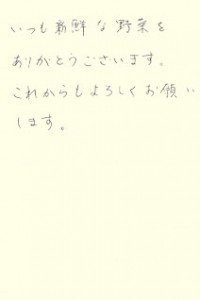 いつも新鮮な野菜を
ありがとうございます。
これからもよろしくお願い
します。